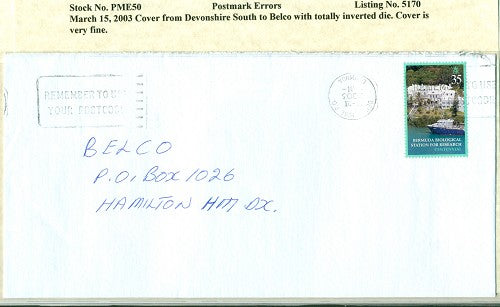 Stock No. PME50 Postmark Errors Listing No. 5170
March 15, 2003 Cover from Devonshire South to Belco with totally inverted die. Cover is
very fine.
REMEMBER TO U
YOUR POSTCODE
35
BERMUDA BIOLOGICAL
STATION FOR RESEARCH
CENTENNIAL
BELCO
P.O. BOX 1026
HAMILTON HM DX.